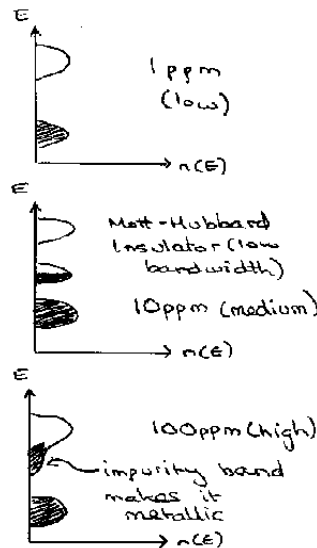 E
1ppm
(low)
n(E)
E
Mott-Hubbard
Insulator (low
bandwidth)
10ppm (medium)
n(E)
E
100ppm (high)
impurity band
makes it
metallic
n(E)